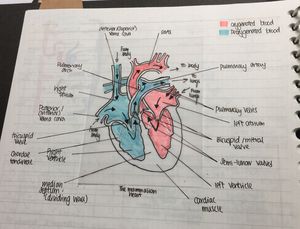 oxygenated blood
deoxygenated blood
Anterior (Superior)
vena cava
aorta
from
body
to body
Pulmonary
to
lungs
pulmonary artery
from
lungs
right
Posterior /
(inferior)
vena cava
from
body
pulmonary veins
left atrium
Bicuspid / mitral
valve
tricuspid
valve
Chordae
tendineae
Right
ventricle
Semi-lunar valves
left ventricle
median
septum
(dividing wall)
The mammalian
heart
Cardiac
muscle